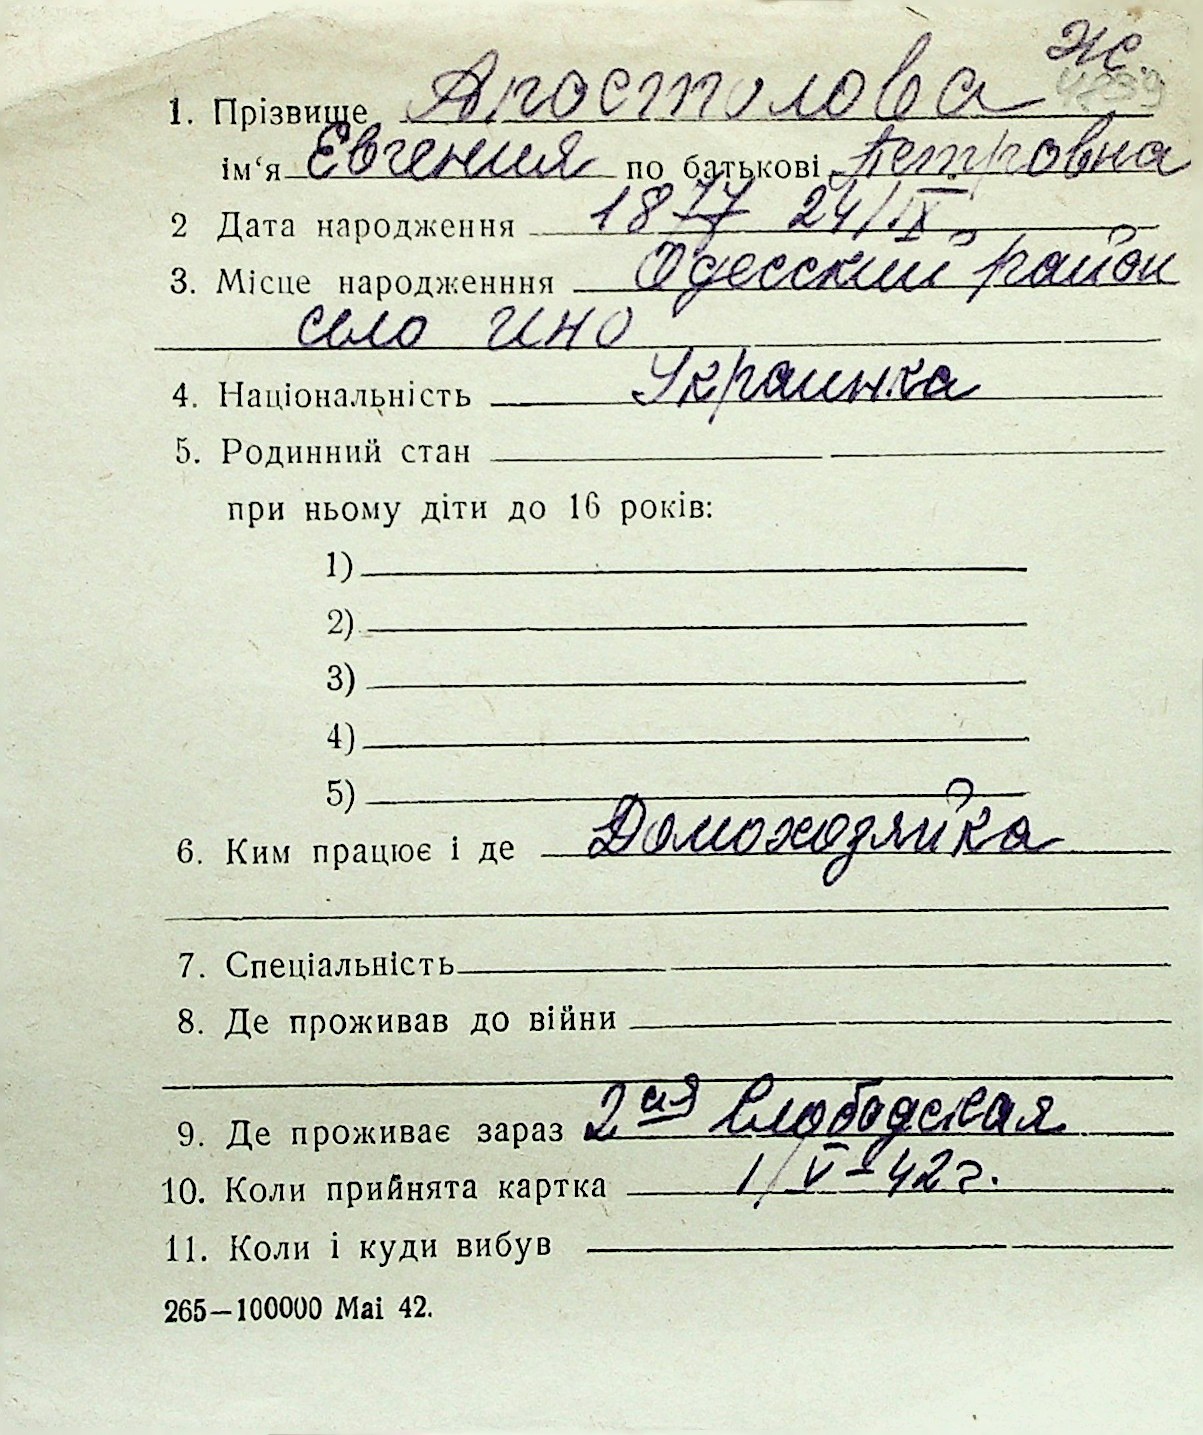 ж.
4239
1. Прізвище Апостолова
ім‘я Евгения по батькові Петровна
2 Дата народження 1877 24/IX
3. Місце народженння Одесский район
село ино
4. Національність Украинка
5. Родинний стан
при ньому діти до 16 років:
1)
2)
3)
4)
5)
6. Ким працює і де Домохозяйка
7. Спеціальність
8. Де проживав до війни
9. Де проживає зараз 2ая Слободская
10. Коли прийнята картка 1/V-42г.
11. Коли і куди вибув
265—100000 Маі 42.